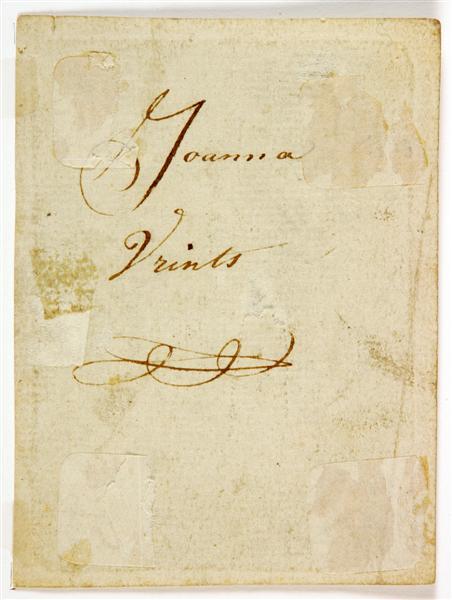 Joanna
Vrints